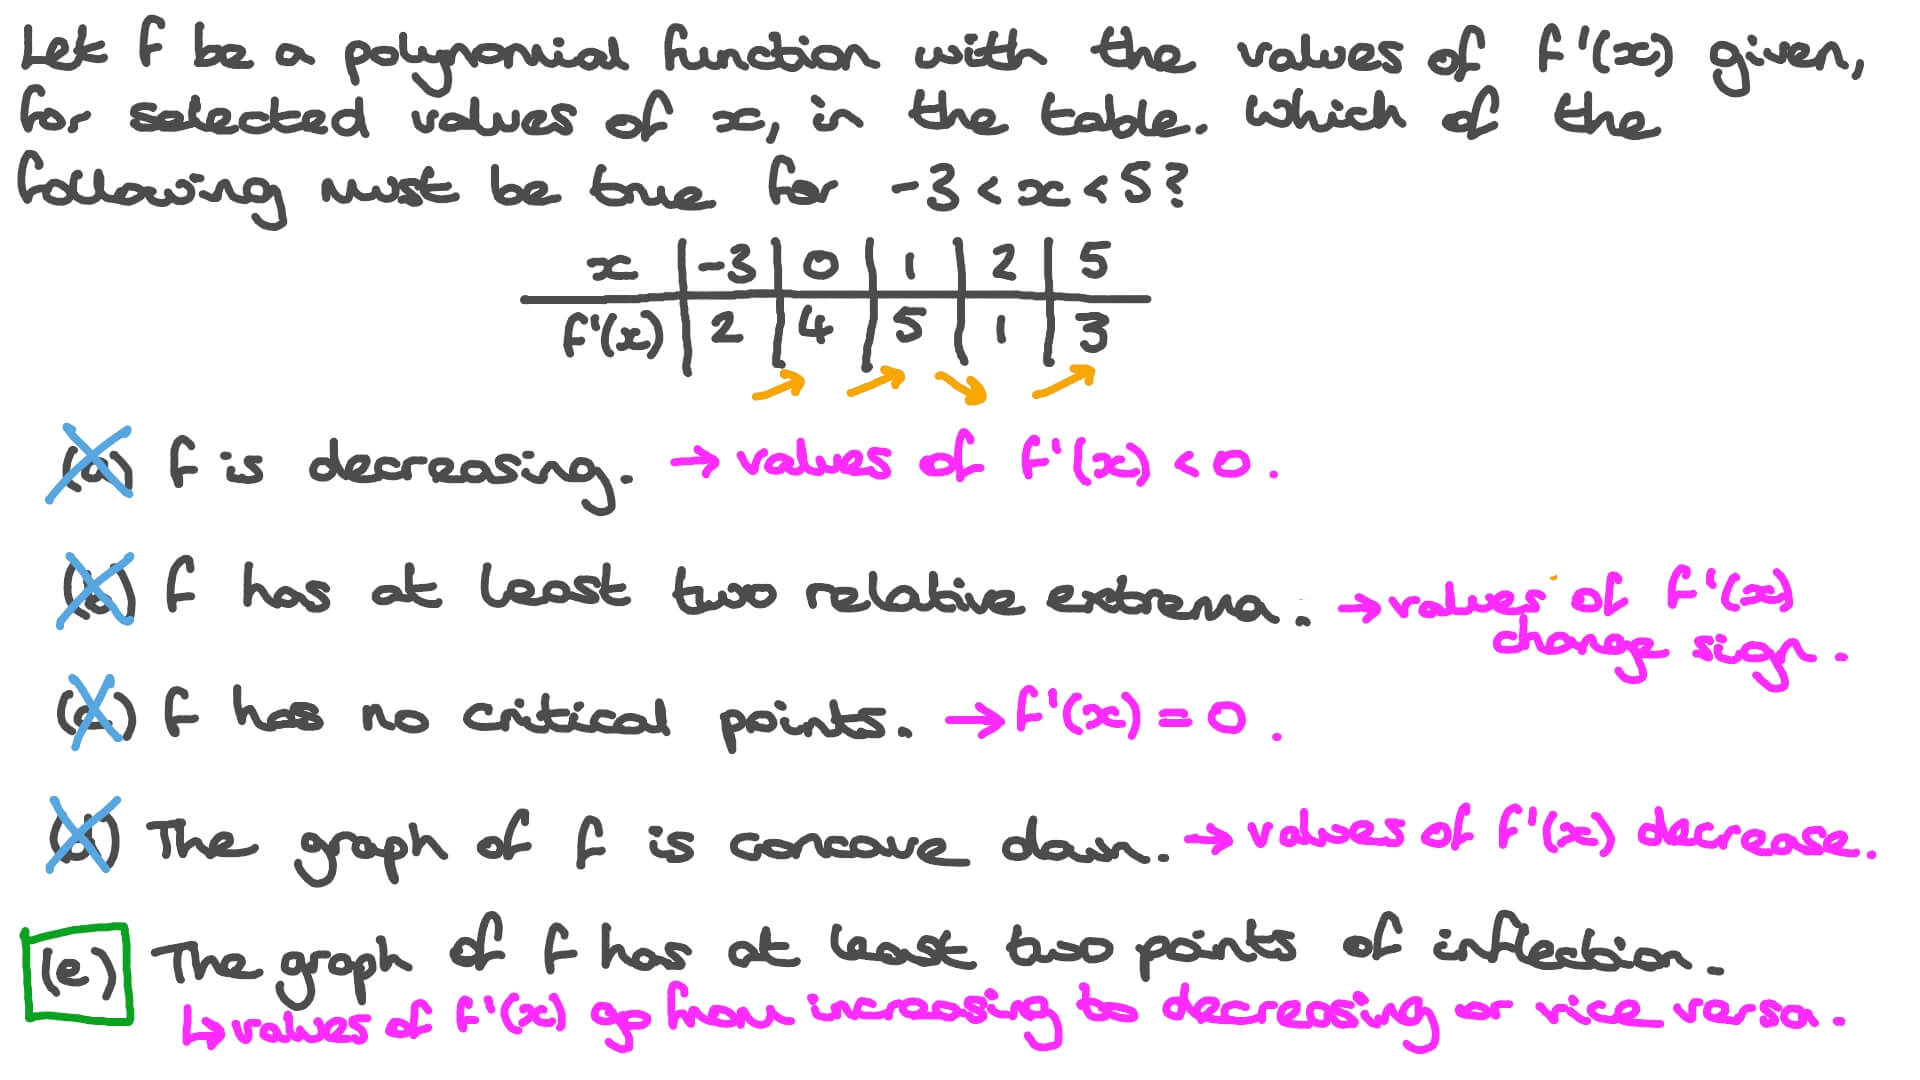 Let f be a polynomial function with the values of f'(x) given,
for selected values of x, in the table. Which of the
following must be true for -3 < x < 5?
x | -3 | 0 | 1 | 2 | 5
f'(x) | 2 | 4 | 5 | 1 | 3
(a) f is decreasing. → values of f'(x) < 0.
(b) f has at least two relative extrema. → values of f'(x)
change sign.
(c) f has no critical points. → f'(x) = 0.
(d) The graph of f is concave down. → values of f'(x) decrease.
(e) The graph of f has at least two points of inflection.
↳ values of f'(x) go from increasing to decreasing or vice versa.